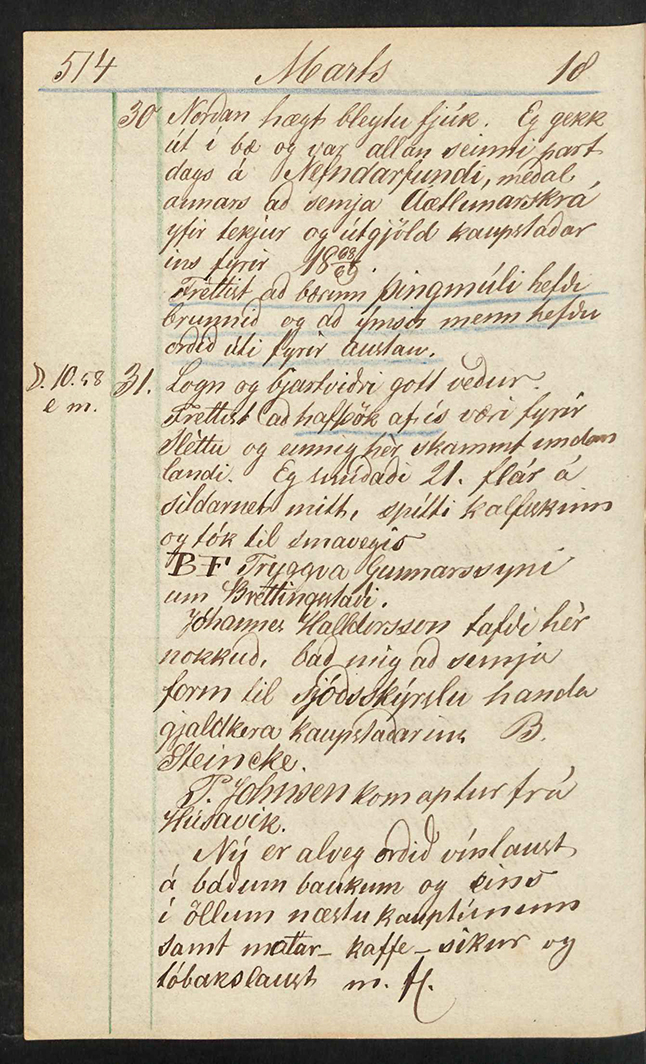 514 Marts 18
30 Nordan hægt bleytu fjúk. Eg gekk
út í bæ og var allan seinni part
dags á Nefndarfundi, medal
annars ad semja Aætlunarskrá
yfir tekjur og útgjöld kaupstadar
ins fyrir 18 68/69.
Fréttist ad bærinn þingmúli hefdi
brunnid og ad ymsir menn hefdu
ordid úti fyrir austan.
D. 10.58 31. Logn og bjartvidri gott vedur.
e m. Frettist ad hafþök af ís væri fyrir
Sléttu og einnig hér skammt undan
landi. Eg smídadi 21. flár á
síldarnet mitt, spítti kalfskinn
og tók til smavegis
BF Tryggva Gunnarssyni
um Brettingsstadi.
Jóhannes Halldorsson tafdi hèr
nokkud, bad mig ad semja
form til sjódsskýrslu handa
gjaldkera kaupstadarins B.
Steincke.
P. Johnsen kom aptur frá
Húsavik.
Ný er alveg ordid vínlaust
á bádum baukum og eins
í öllum næstu kauptúnum
samt matar- kaffe- sikur og
tóbakslaust m. fl.